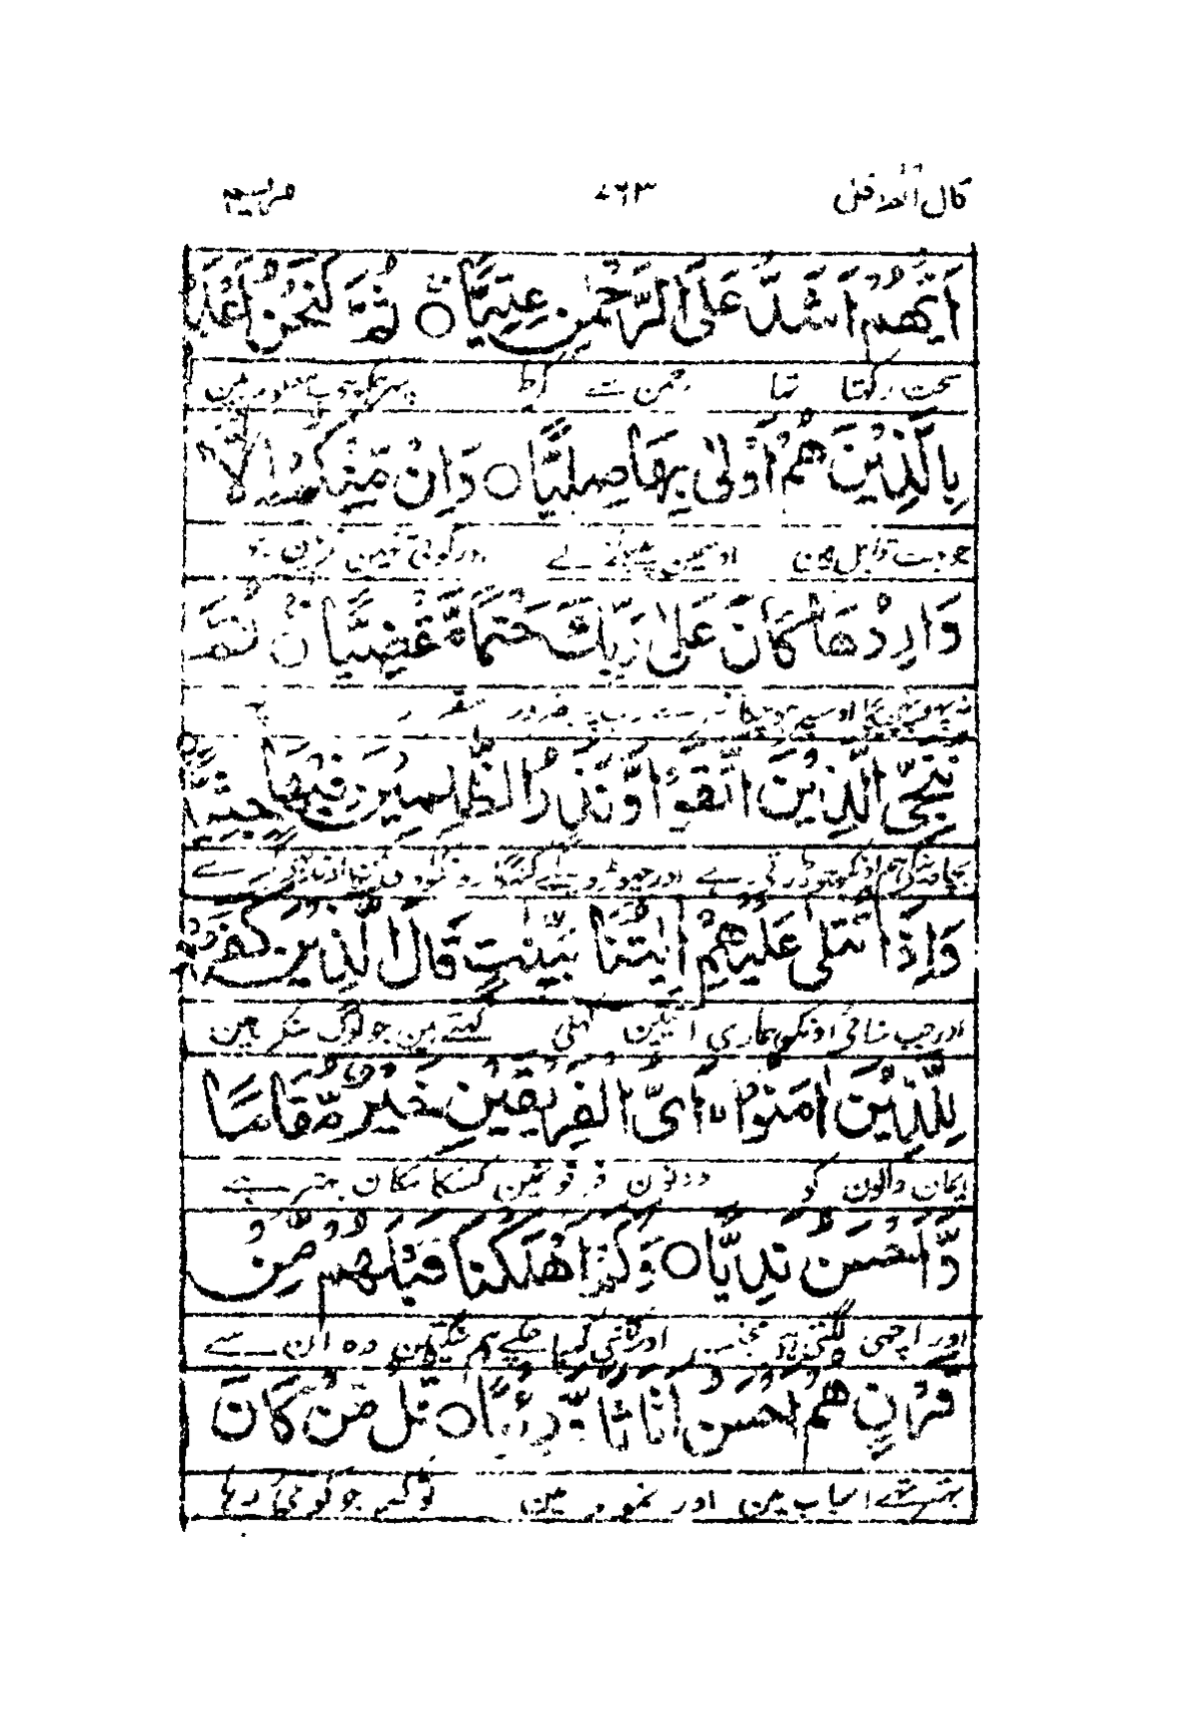 قال الم ۷۶۳ مریم
اَيُّهُمْ اَشَدُّ عَلَى الرَّحْمٰنِ عِتِيًّا ۝ ثُمَّ لَنَحْنُ اَعْلَمُ
سخت رکھتا تھا رحمن سے اکڑ پھر ہمکو خوب معلوم ہین
بِالَّذِيْنَ هُمْ اَوْلٰى بِهَا صِلِيًّا ۝ وَاِنْ مِّنْكُمْ اِلَّا
جو بہت قابل ہین اوسمین پیٹھنے کے اور کوئی نہین تم مین جو
وَارِدُهَا كَانَ عَلٰى رَبِّكَ حَتْمًا مَّقْضِيًّا ۝ ثُمَّ
نہ پہونچیگا اوسپر ہو چکا تیرے رب پر ضرور مقرر پھر
نُنَجِّى الَّذِيْنَ اتَّقَوْا وَّنَذَرُ الظّٰلِمِيْنَ فِيْهَا جِثِيًّا ۝
بچاوینگے ہم اونکو جو ڈرتے رہے اور چھوڑ دینگے گنہگارونکو اوسمین اوندھے گرے
وَاِذَا تُتْلٰى عَلَيْهِمْ اٰيٰتُنَا بَيِّنٰتٍ قَالَ الَّذِيْنَ كَفَرُوْا
اور جب سنائی اونکو ہماری آیتین کھلی کہتے ہین جو لوگ منکر ہین
لِلَّذِيْنَ اٰمَنُوْا اَىُّ الْفَرِيْقَيْنِ خَيْرٌ مَّقَامًا
ایمان والون کو دونون فرقونمین کسکا مکان بہتر ہے
وَّاَحْسَنُ نَدِيًّا ۝ وَكَمْ اَهْلَكْنَا قَبْلَهُمْ مِّنْ
اور اچھی لگتی ہے مجلس اور کتنی کھپا چکے ہم سنگتین وہ ان سے
قَرْنٍ هُمْ اَحْسَنُ اَثَاثًا وَّرِءْيًا ۝ قُلْ مَنْ كَانَ
بہتر تھے اسباب مین اور نمود مین تو کہہ جو کوئی رہا